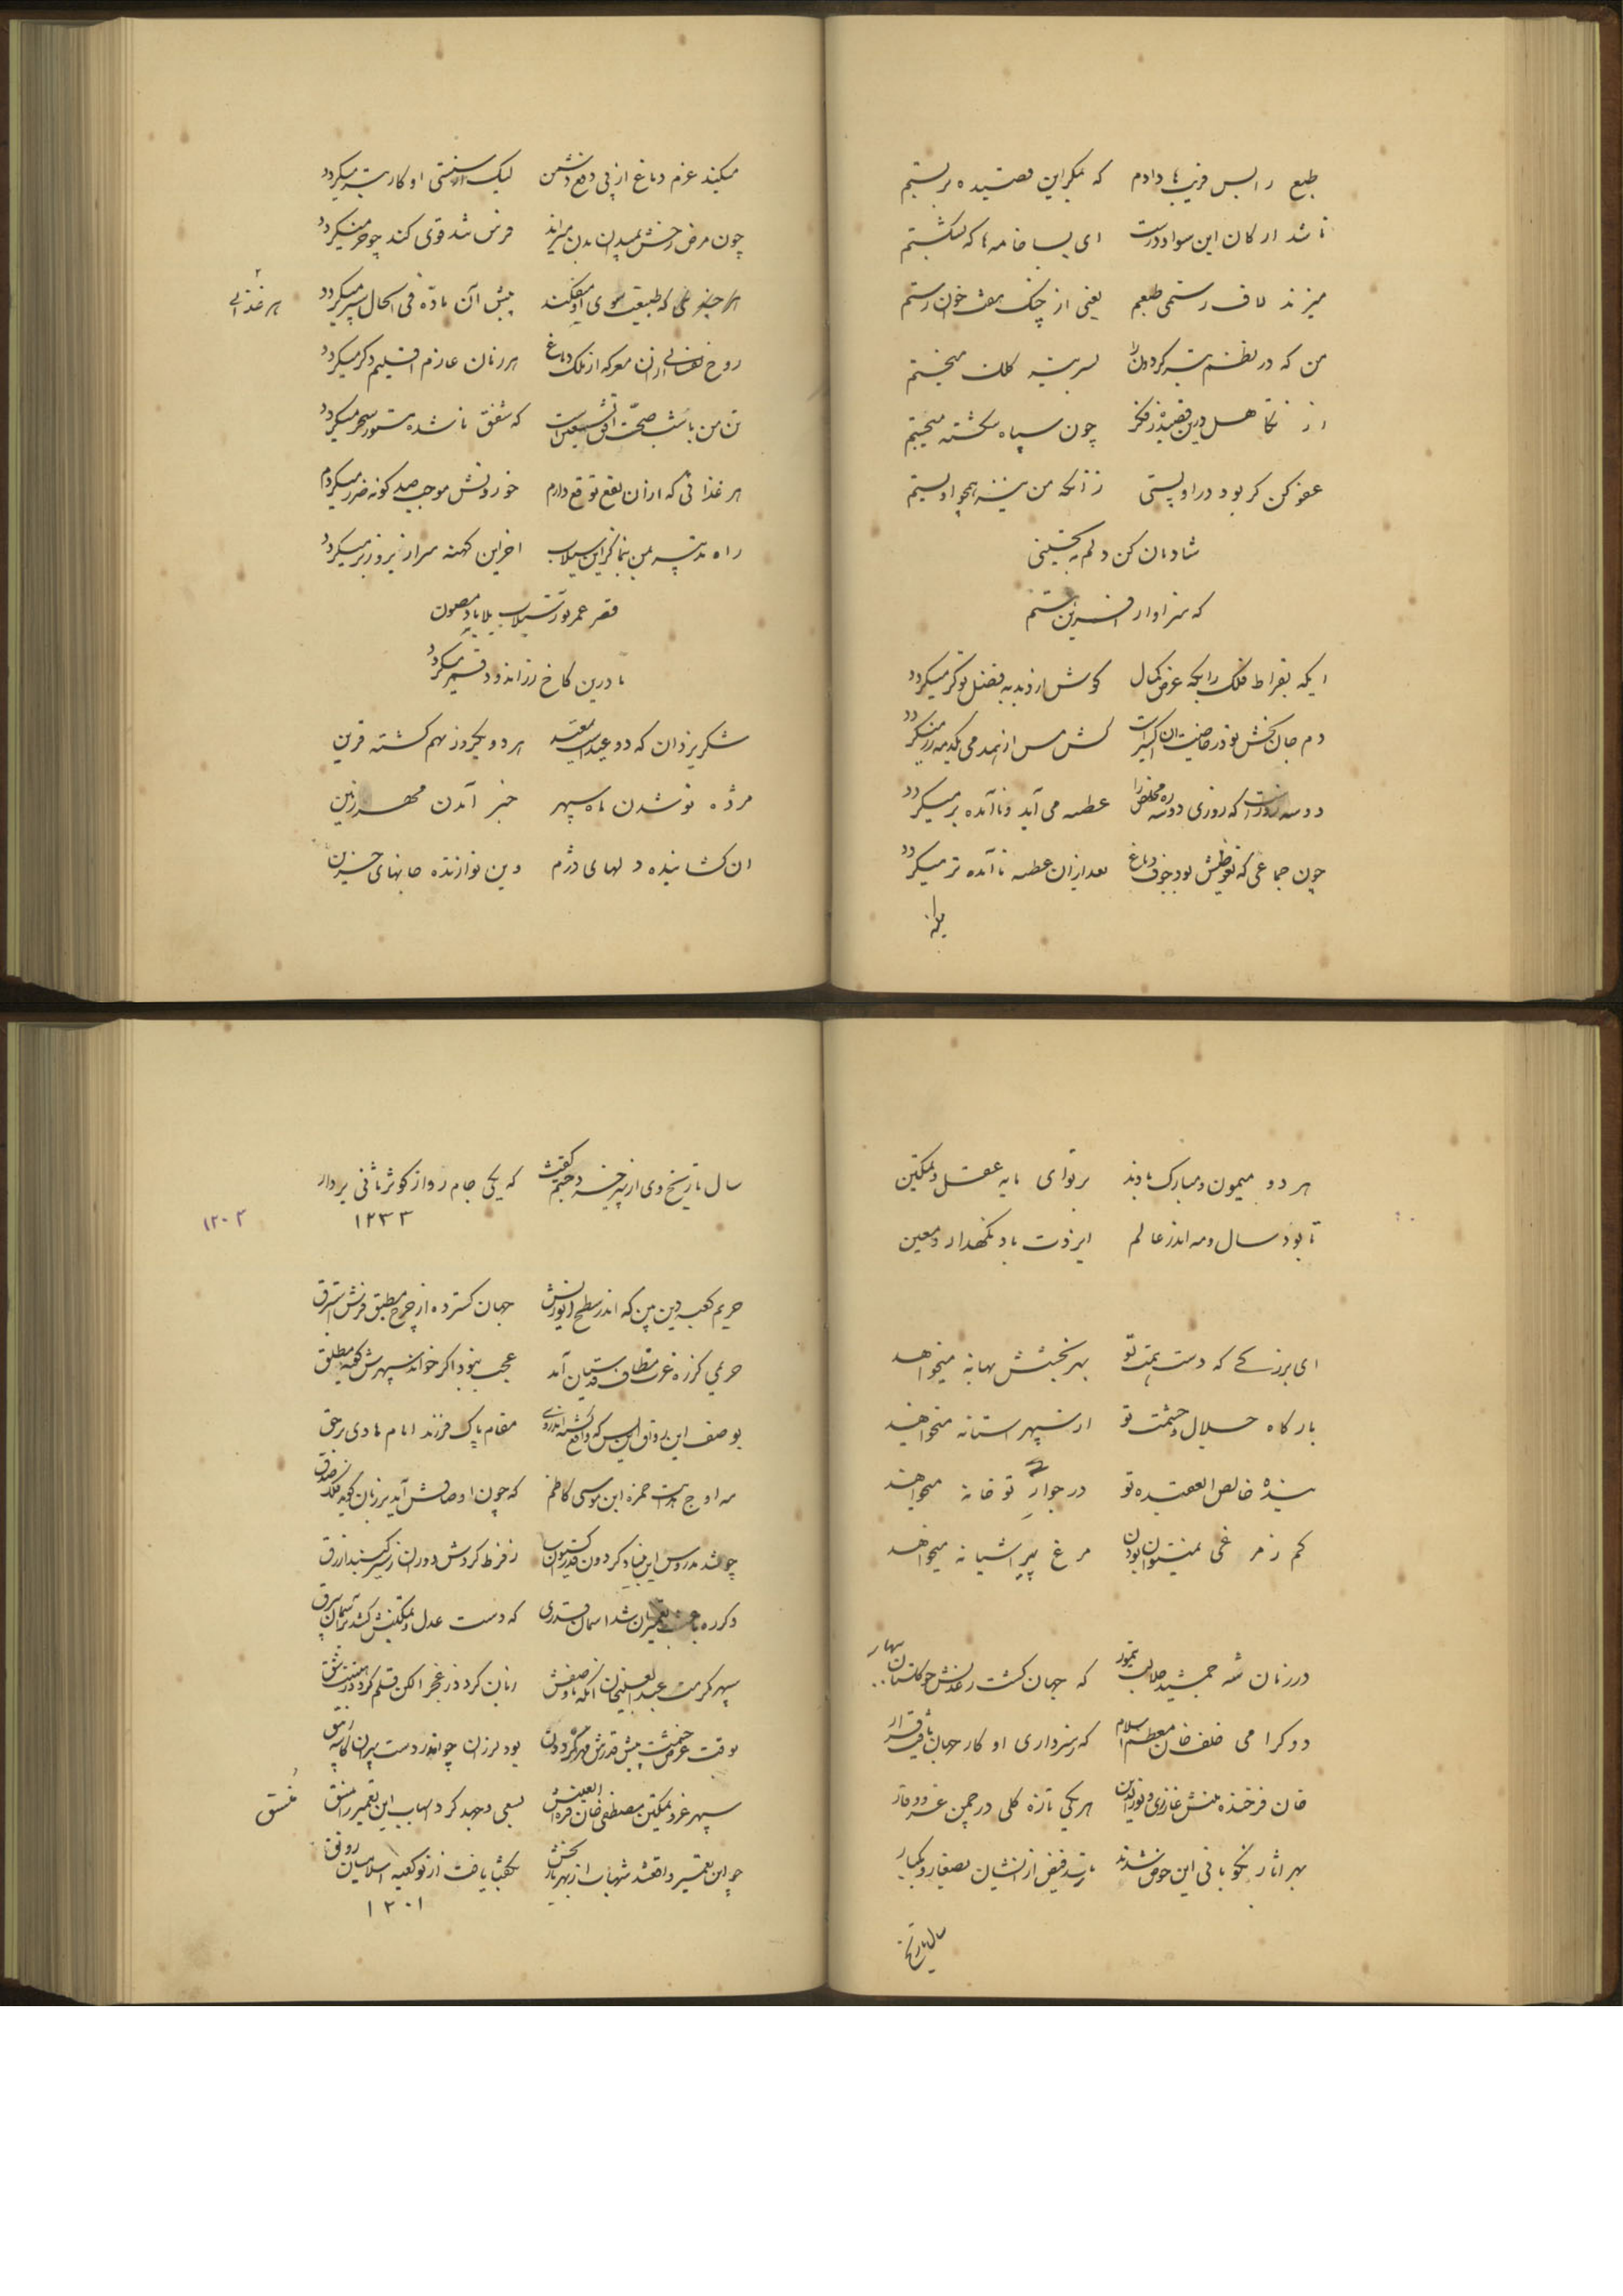 طبع را بس فریبها دادم که بکر این قصیده بر بستم
تا شد ارکان این سواد درست ای بسا خامه ها که بشکستم
میزند لاف رستمی طبعم یعنی از جنک هفت خوان رستم
من که در نظم تیر کردون را بسر تیر کلک میخستم
از تکاهل درین قصیده ز فکر چون سپاه شکسته میجستم
عفو کن کر بود در او پستی زانکه من نیز همچو او پستم
شادمان کن دلم به تحسینی
که سزاوار آفرین هستم
ایکه بقراط فلک را بکه عرض کمال کوش از دبدبه فضل تو کر میکردد
دم جان بخش تو در خاصیت آن اکسیر است کش مس از نیم دمی یکدمه زر میکردد
دو سه روز است که روزی دو سه ره مخلص را عطسه می آید و ناآمده بر میکردد
چون جماعی که تقاضاش بود جوف دماغ بعد ازان عطسه ناآمده تر میکردد
میکند عزم دماغ از پی دفع دشمن لیک از سستی او کار بتر میکردد
چون مرض رخش بمیدان بدن میراند فرس شد قوی کند چو خر میکردد
که طبیعت سوی او میفکند پیش آن ماده فی الحال سپر میکردد
هر غذائی
روح نفسانی ازان معرکه از ملک دماغ هر زمان عازم اقلیم دکر میکردد
تن من با شب صحت افق تشعیر است که شفق نا شده مستور سحر میکردد
هر غذائی که ازان نفع توقع دارم خوردنش موجب صد کونه ضرر میکردد
راه تدبیر بمن بنما کز این سیلاب آخر این کهنه سرا زیر و زبر میکردد
قصر عمر تو ز سیلاب بلا باد مصون
تا درین کاخ زر اندود قمر میکردد
شکر یزدان که دو عید اسعد هر دو یکروز بهم کشته قرین
مژده نو شدن ماه سپهر خبر آمدن مهر زمین
آن کشاینده دلهای دژم وین نوازنده جانهای حزین
هر دو میمون و مبارک بادند بر تو ای مایه عقل و تمکین
تا بود سال و مه اندر عالم ایزدت باد نکهدار و معین
ای بزرکی که دست همت تو بهر بخشش بهانه میخواهد
بارکاه جلال و حشمت تو از سپهر آستانه میخواهد
بنده خالص العقیده تو در جوار تو خانه میخواهد
کم ز مرغی نمیتوان بودن مرغ نیز آشیانه میخواهد
در زمان شه جمشید جلالت تیمور که جهان کشت ز عدلش چو کلستان بهار
دو کرامی خلف خان معظم اسلام که ز سرداری او کار جهان یافت قرار
خان فرخنده منش غازی و نورالدین هر یکی تازه کلی در چمن عز و وقار
بهر آثار نکو بانی این حوض شدند تا رسد فیض از ایشان بصغار و کبار
سال تاریخ
سال تاریخ وی از پیر خرد جستم کفت که یکی جام روا از کوثر ثانی بردار
۱۲۳۳
۱۲۰۲
حریم کعبه دین بین که اندر سطح ایوانش جهان کسترده از چرخ مطبق فرش استبرق
حریمی کز ره عزت مطاف قدسیان آمد عجب نبود اکر خواند سپهرش کعبه مطلق
بوصف این رواق این بس که واقع کشته اندر وی مقام پاک فرزند امام هادی بر حق
مه اوج هدایت حمزه ابن موسی کاظم که چون اوصافش آید بر زبان کوید ملک صدق
چو شد مدروس این بنیاد کردون قدر کیوان سا ز فرط کردش دوران زیر کنبد ازرق
دکر ره باعث تعمیر آن شد آسمان قدری که دست عدل و تمکینش کشد بر آسمان سنجق
سپهر مکرمت عبدالعلیخان آنکه با وصفش
بوقت عرض حشمت پیش قدرش مهر کردون بود لرزان چو اندر دست پیران کاسه زیبق
سپهر عز و تمکین مصطفی خان بسعی و جهد کرد اسباب این تعمیر را منسق
مُنسق
چو این تعمیر واقع شد شهاب از بهر تاریخش بکفتا یافت از نو کعبه اسلامیان رونق
۱۲۰۱